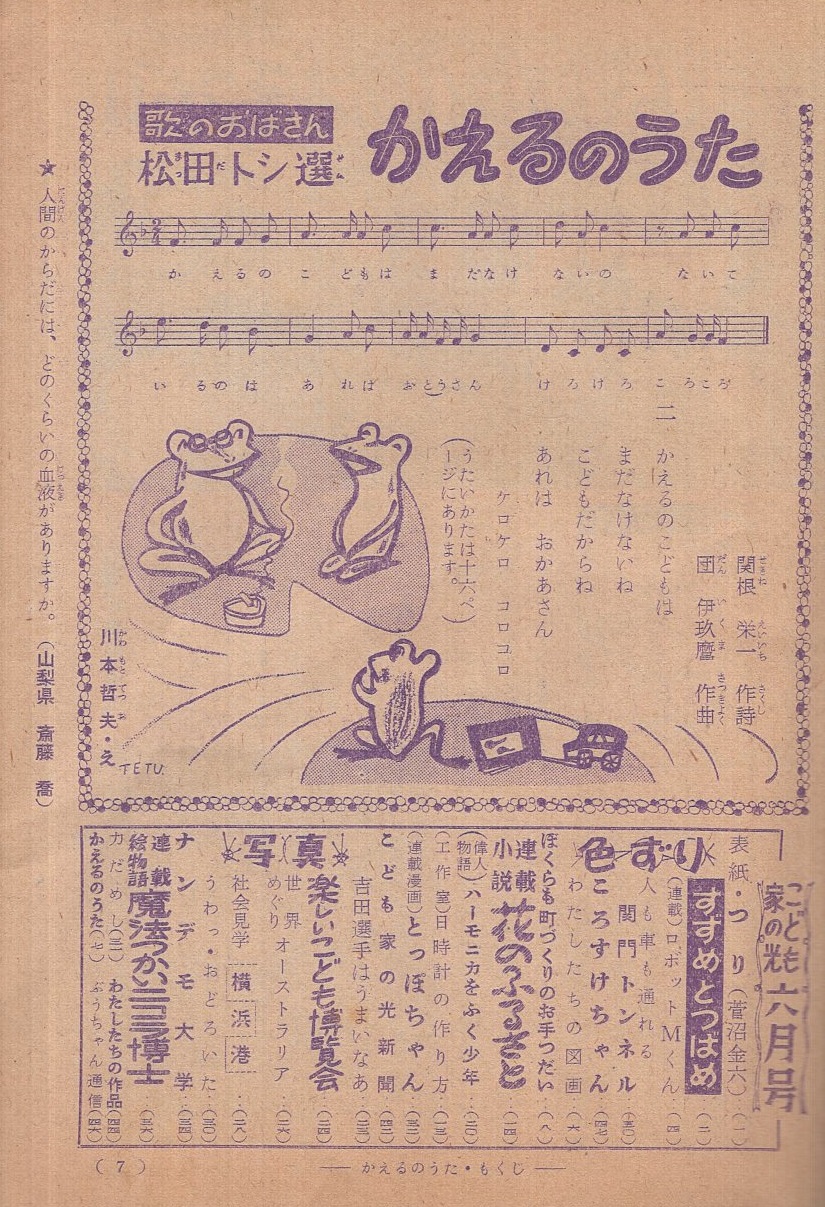 かえるのうた
歌のおばさん
松田トシ選
かえるのこどもは まだなけないの ないて
いるのは あれば おとうさん けろけろ ころころ
関根 栄一 作詩
団 伊玖麿 作曲
二 かえるのこどもは
まだなけないね
こどもだからね
あれは おかあさん
ケロケロ コロコロ
(うたいかたは十六ペ
ージにあります。)
川本哲夫・え
TETU.
★人間のからだには、どのくらいの血液がありますか。(山梨県 斎藤 喬)
こども家の光 六月号
表紙・つり(菅沼金六)‥(一)
すずめとつばめ‥(二)
(連載)ロボットMくん‥(四)
色ずり
人も車も通れる
関門トンネル‥(五〇)
ころすけちゃん‥(四七)
わたしたちの図画‥(六)
ぼくらも町づくりのお手つだい‥(八)
連載小説 花のふるさと‥(一四)
(偉人物語)ハーモニカをふく少年‥(二〇)
(工作室)日時計の作り方‥(一三)
(連載漫画)とっぽちゃん‥(三二)
こども家の光新聞‥(四二)
吉田選手はうまいなあ
写真
楽しいこども博覧会‥(二四)
世界めぐり オーストラリア‥(二六)
社会見学 横浜港‥(二八)
うわっ・おどろいた‥(三〇)
ナンデモ大学‥(三四)
連載絵物語 魔法つかいニコラ博士‥(三六)
力だめし(三一) わたしたちの作品(四四)
かえるのうた(七) ぶうちゃん通信(四六)
(7)
── かえるのうた・もくじ ──